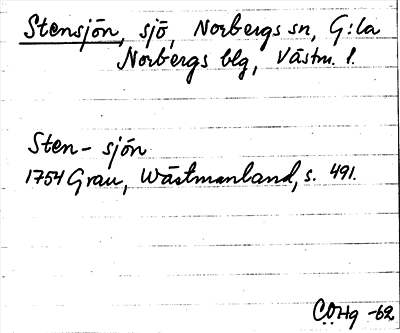 Stensjön, sjö, Norbergs sn, G:la
Norbergs blg, Västm. l.
Sten-sjön
1754 Grau, Wästmanland, s. 491.
COHg -62